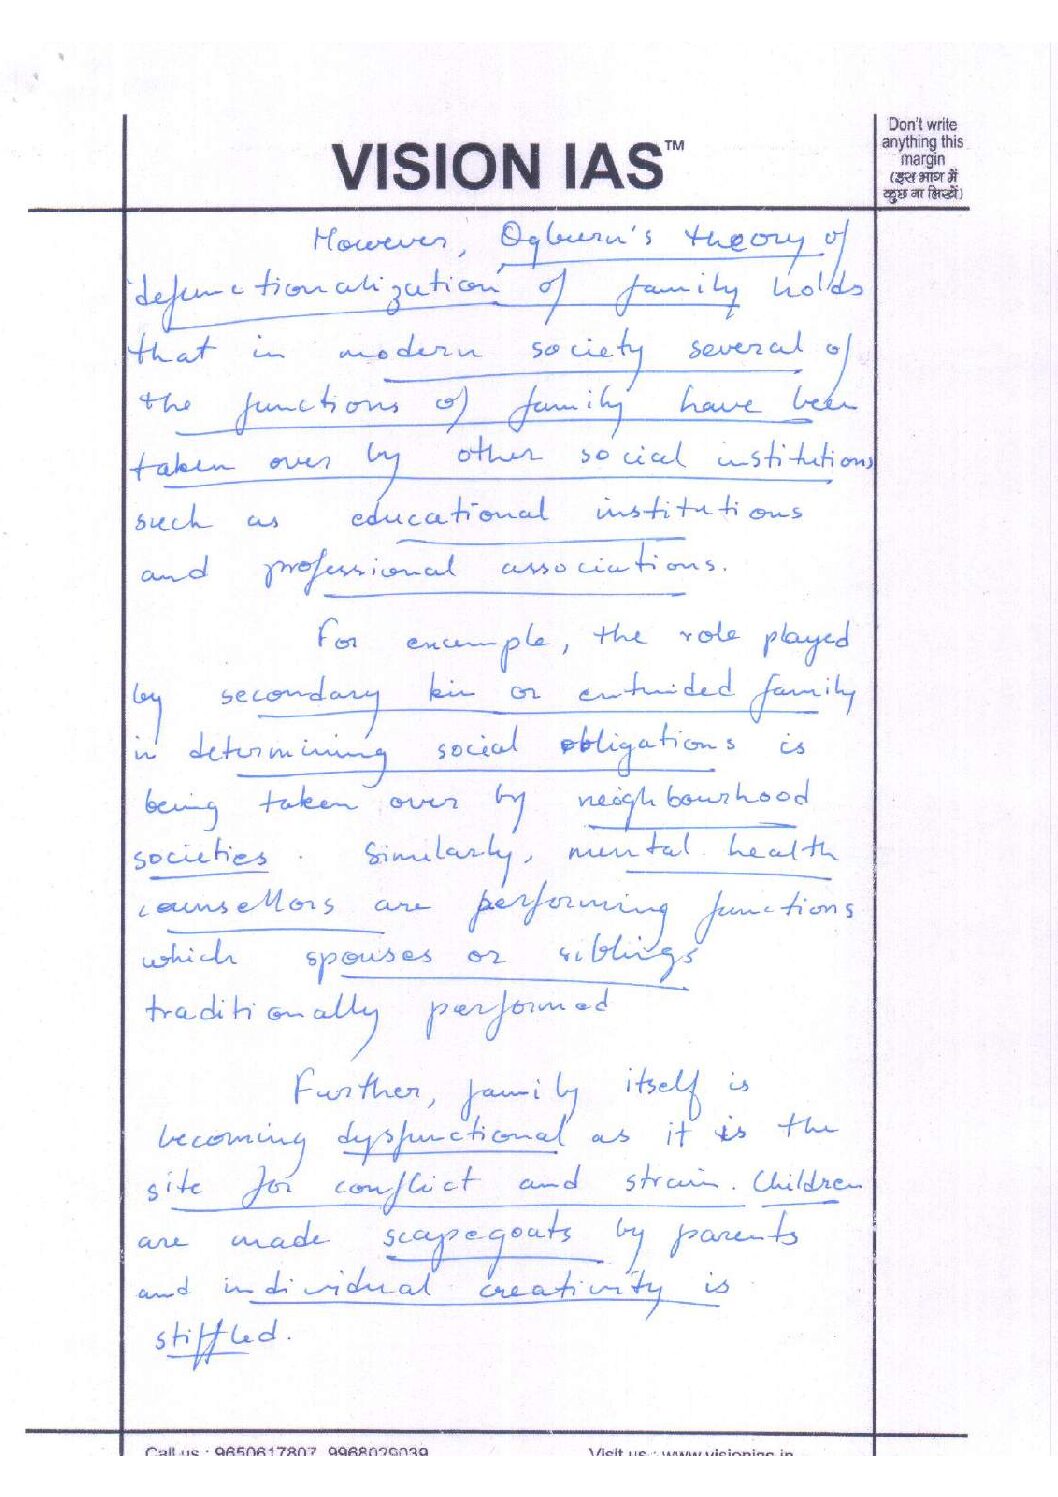 Don't write
anything this
margin
(इस भाग में
कुछ ना लिखें)
VISION IAS™
However, Ogburn's theory of
defunctionalization of family holds
that in modern society several of
the functions of family have been
taken over by other social institutions
such as educational institutions
and professional associations.
For example, the role played
by secondary kin or extended family
in determining social obligations is
being taken over by neighbourhood
societies. Similarly, mental health
counsellors are performing functions
which spouses or siblings
traditionally performed
Further, family itself is
becoming dysfunctional as it is the
site for conflict and strain. Children
are made scapegoats by parents
and individual creativity is
stiffled.
Call us : 9650617807, 9968029039 Visit us : www.visionias.in